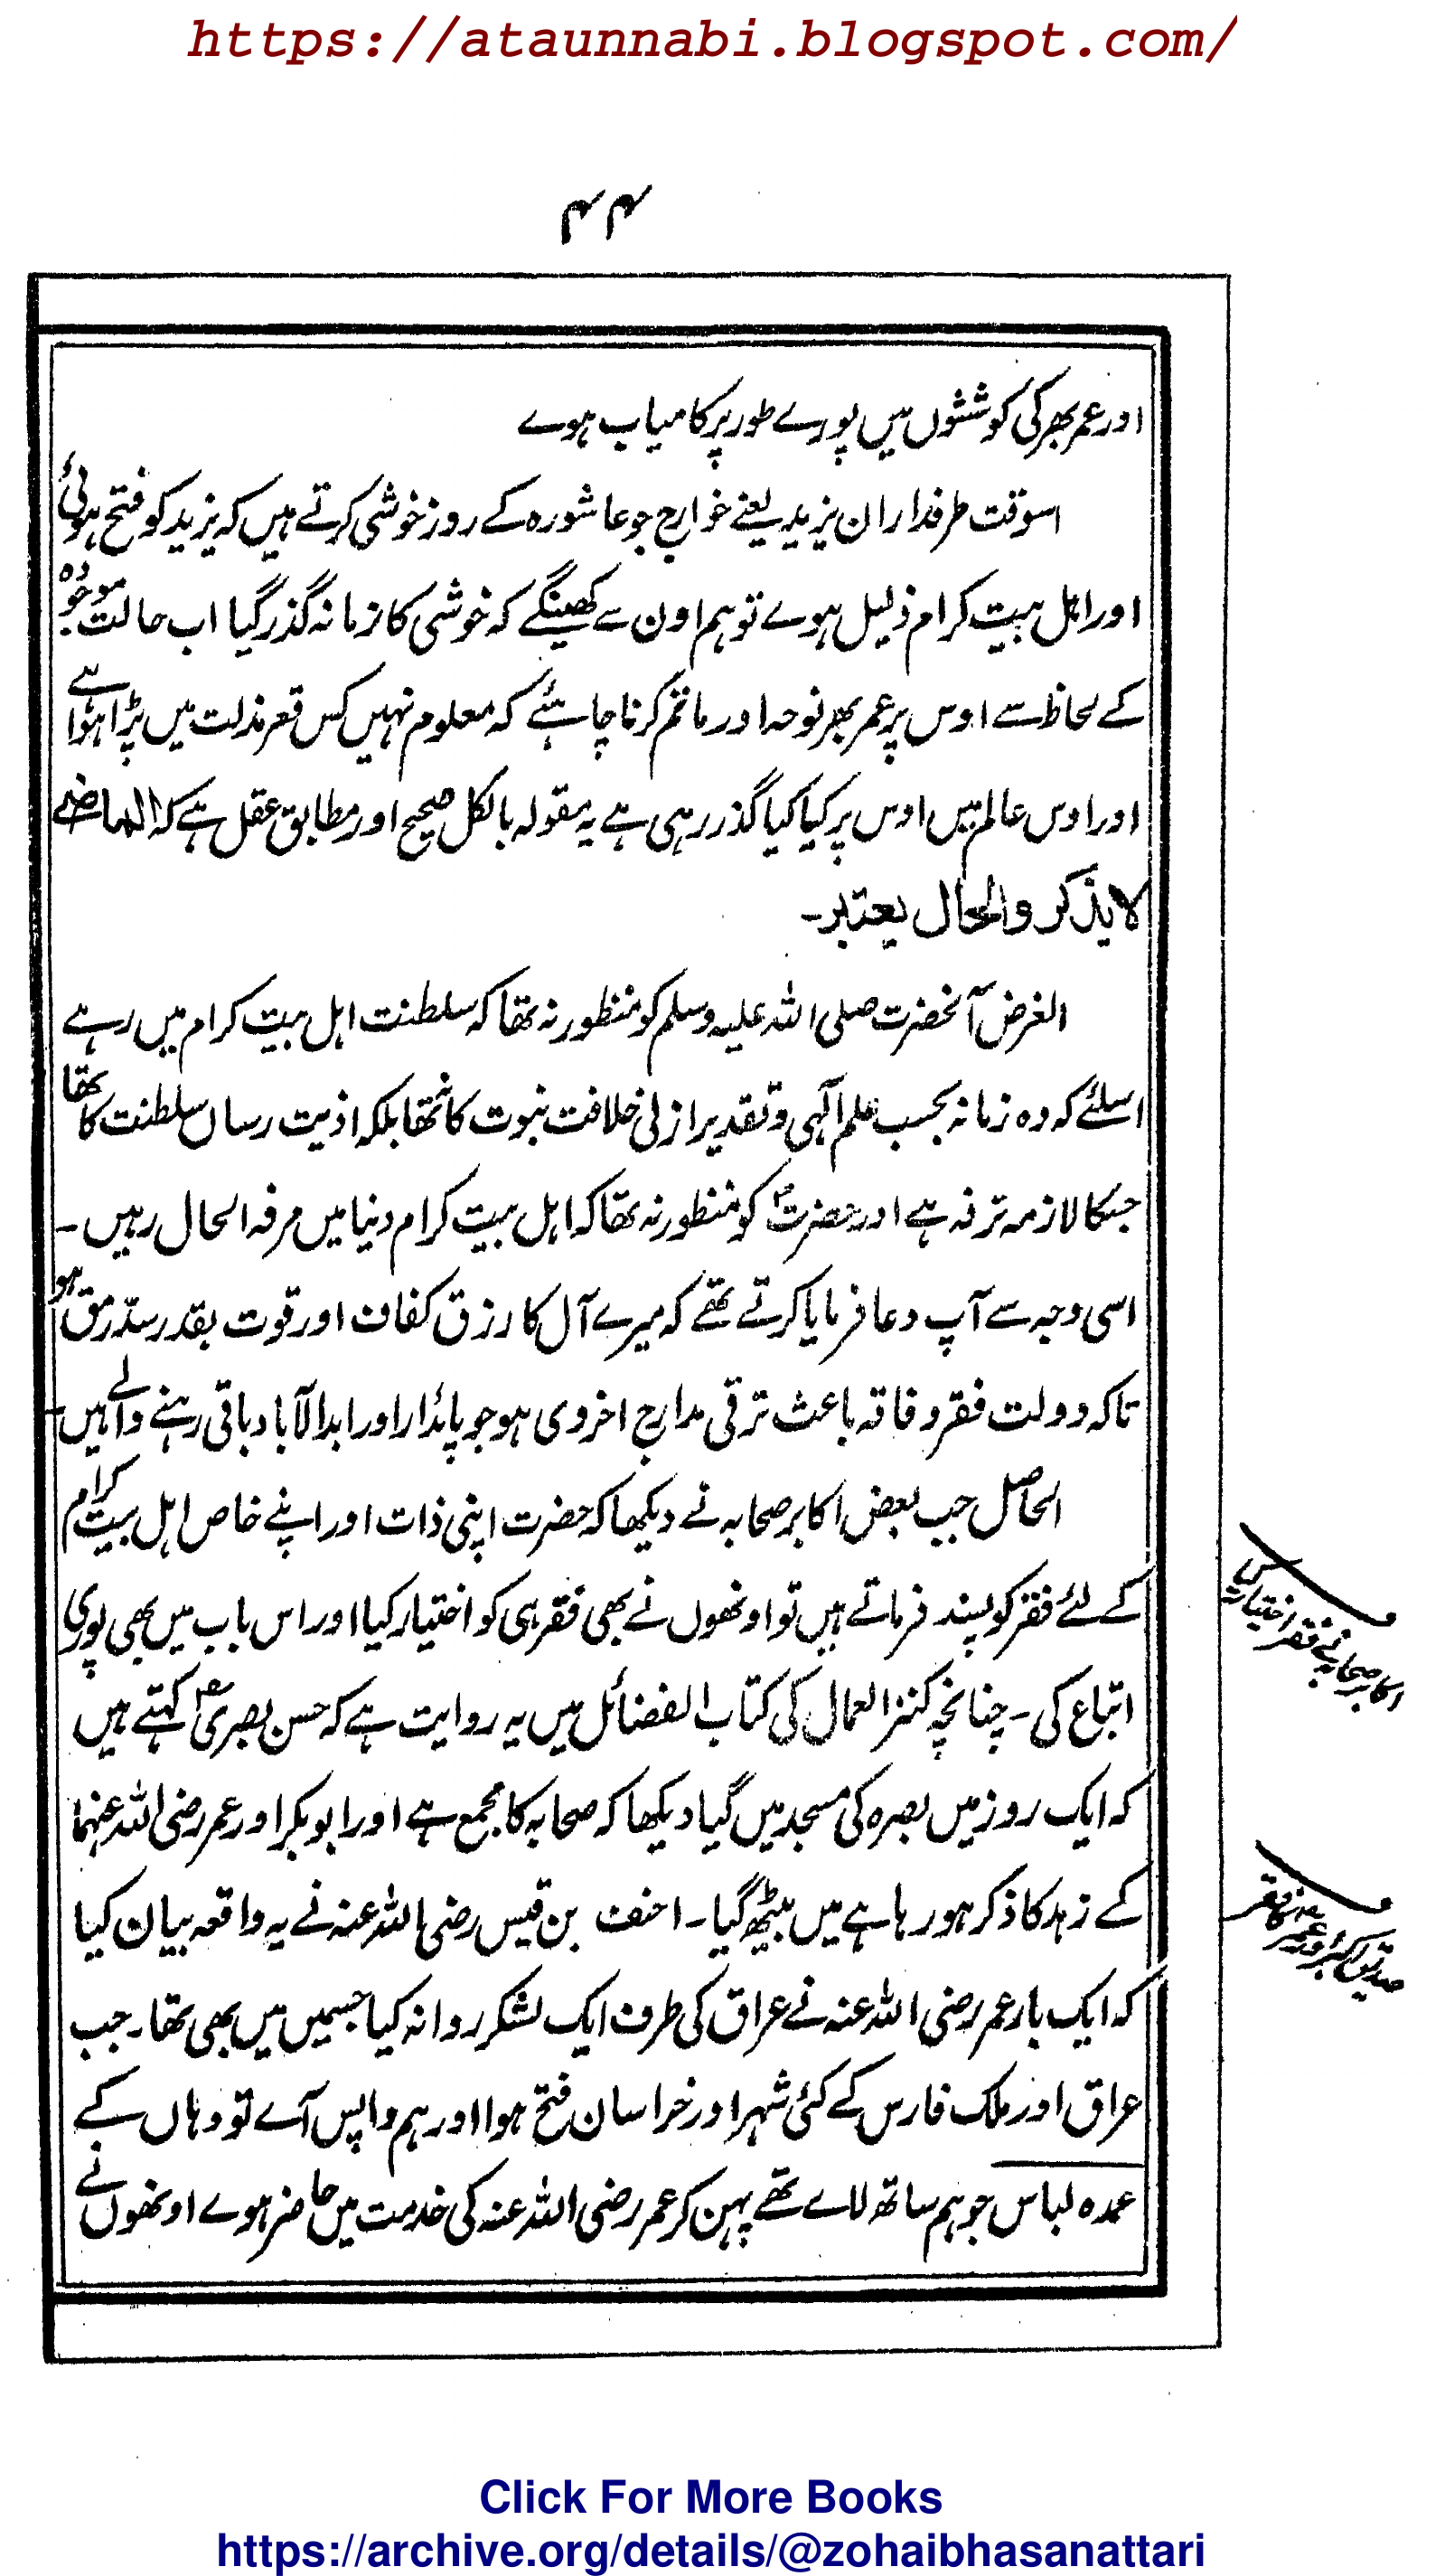 https://ataunnabi.blogspot.com/
۴۴
اور عمر بھر کی کوششوں میں پورے طور پر کامیاب ہوے
اسوقت طرفداران یزید یعنے خوارج جو عاشورہ کے روز خوشی کرتے ہیں کہ یزید کو فتح ہوئی
اور اہل بیت کرام ذلیل ہوے تو ہم اون سے کھینگے کہ خوشی کا زمانہ گذر گیا اب حالت موجودہ
کے لحاظ سے اوس پر عمر بھر نوحہ اور ماتم کرنا چاہئے کہ معلوم نہیں کس قعر مذلت میں پڑا ہوا ہے
اور اوس عالم میں اوس پر کیا کیا گذر رہی ہے یہ مقولہ بالکل صحیح اور مطابق عقل ہے کہ الماضے
لا یذکر والحال یعتبر۔
الغرض آنحضرت صلی اللہ علیہ وسلم کو منظور نہ تھا کہ سلطنت اہل بیت کرام میں رہے
اسلئے کہ وہ زمانہ بحسب علم آلٰہی و تقدیر ازلی خلافت نبوت کا نہ تھا بلکہ اذیت رساں سلطنت کا تھا
جسکا لازمہ ترفہ ہے اور حضرتؐ کو منظور نہ تھا کہ اہل بیت کرام دنیا میں مرفہ الحال رہیں۔
اسی وجہ سے آپ دعا فرمایا کرتے تھے کہ میرے آل کا رزق کفاف اور قوت بقدر سدّ رمق ہو
تاکہ دولت فقر و فاقہ باعث ترقی مدارج اخروی ہو جو پائدار اور ابدالآباد باقی رہنے والے ہیں۔
الحاصل جب بعض اکابر صحابہ نے دیکھا کہ حضرت اپنی ذات اور اپنے خاص اہل بیت کرام
کے لئے فقر کو پسند فرماتے ہیں تو اونھوں نے بھی فقر ہی کو اختیار کیا اور اس باب میں بھی پوری
اتباع کی۔ چنانچہ کنز العمال کی کتاب الفضائل میں یہ روایت ہے کہ حسن بصریؒ کہتے ہیں
کہ ایک روز میں بصرہ کی مسجد میں گیا دیکھا کہ صحابہ کا مجمع ہے اور ابوبکر اور عمر رضی اللہ عنہما
کے زہد کا ذکر ہو رہا ہے میں بیٹھ گیا۔ احنف بن قیس رضی اللہ عنہ نے یہ واقعہ بیان کیا
کہ ایک بار عمر رضی اللہ عنہ نے عراق کی طرف ایک لشکر روانہ کیا جسمیں میں بھی تھا۔ جب
عراق اور ملک فارس کے کئی شہر اور خراسان فتح ہوا اور ہم واپس آے تو وہاں کے
عمدہ لباس جو ہم ساتھ لاے تھے پہن کر عمر رضی اللہ عنہ کی خدمت میں حاضر ہوے اونھوں نے
اکابر صحابہ نے فقر اختیار کیا
صدیق اکبر و عمر کا فقر
Click For More Books
https://archive.org/details/@zohaibhasanattari